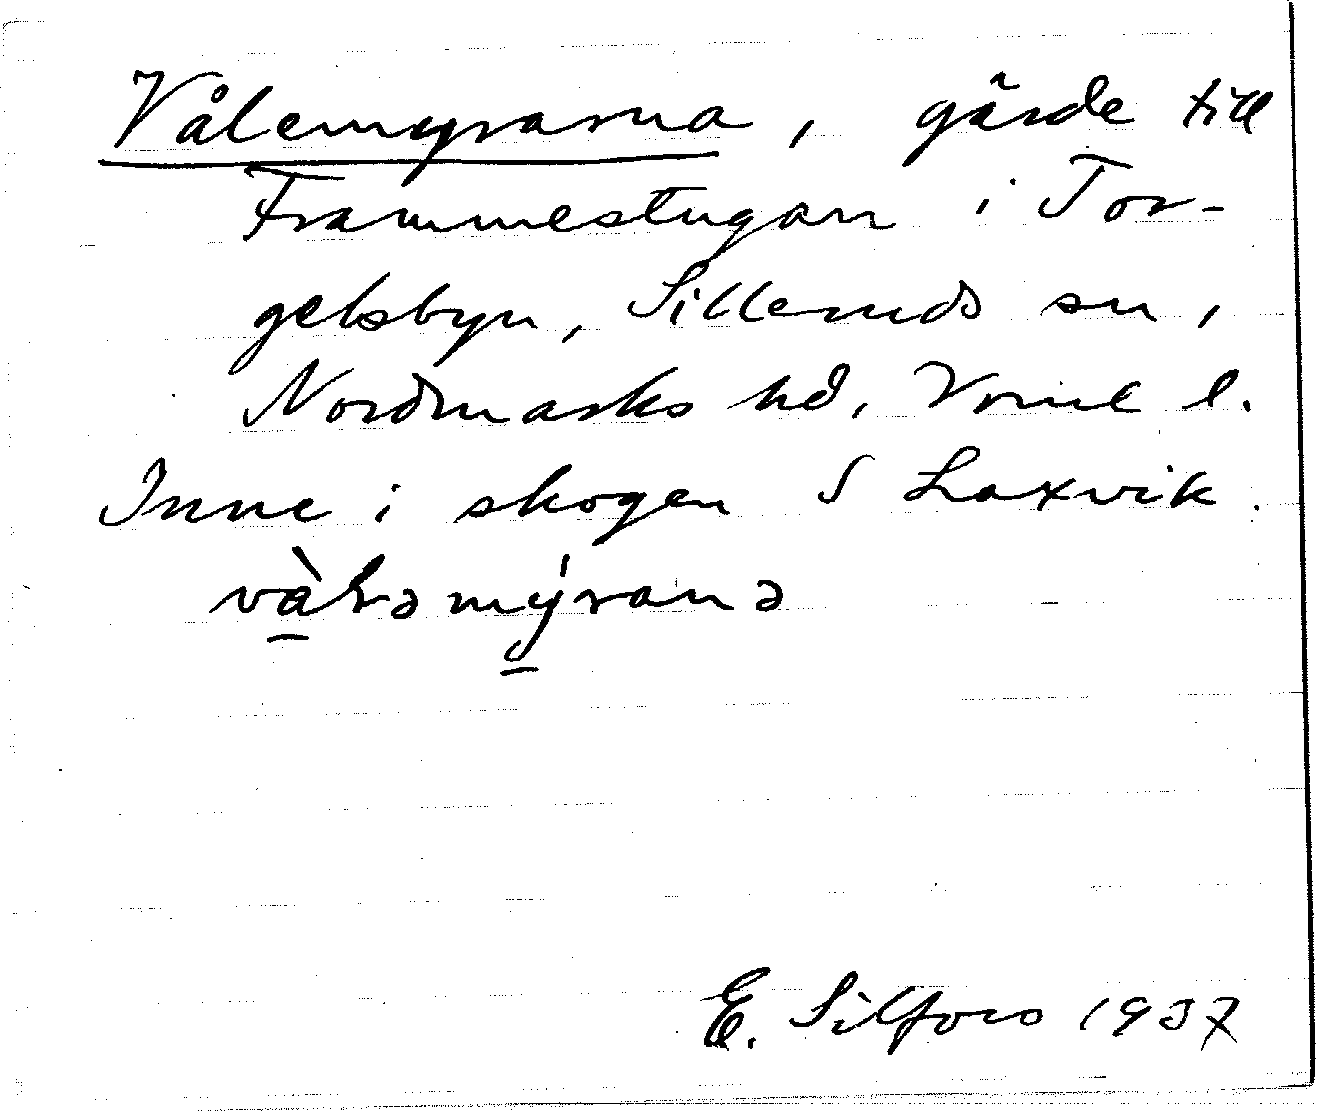 Vålemyrarna, gärde till
Frammestugan i Tor-
gelsbyn, Silleruds sn,
Nordmarks hd, Värml l.
Inne i skogen S Laxvik.
E. Silfors 1937